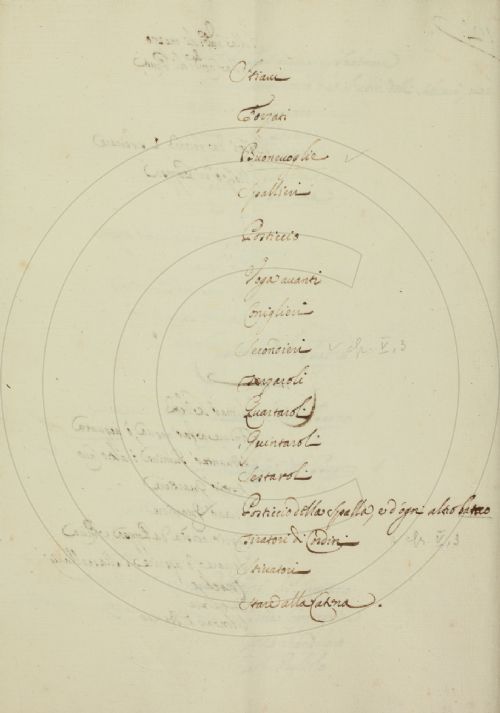 Stiaui
Forzati
Buoneuoglie
Spallieri
Posticcio
Voga auanti
Coniglieri
Secondieri
Terzaroli
Quartaroli
Quintaroli
Sestaroli
Posticcio della Spalla, e d'ogni altro banco
Tiratori di Cordini
Stiuatori
Stare alla Catena.